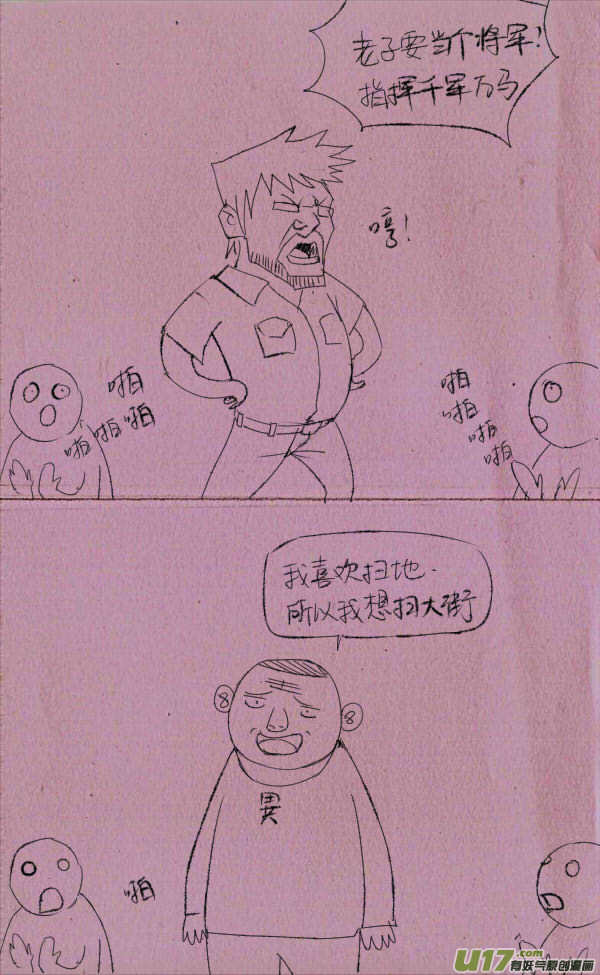 老子要当个将军!
指挥千军万马
哼!
啪
啪啪啪
啪
啪
啪
啪
我喜欢扫地.
所以我想扫大街
8
8
異
啪
U17.com
有妖气原创漫画